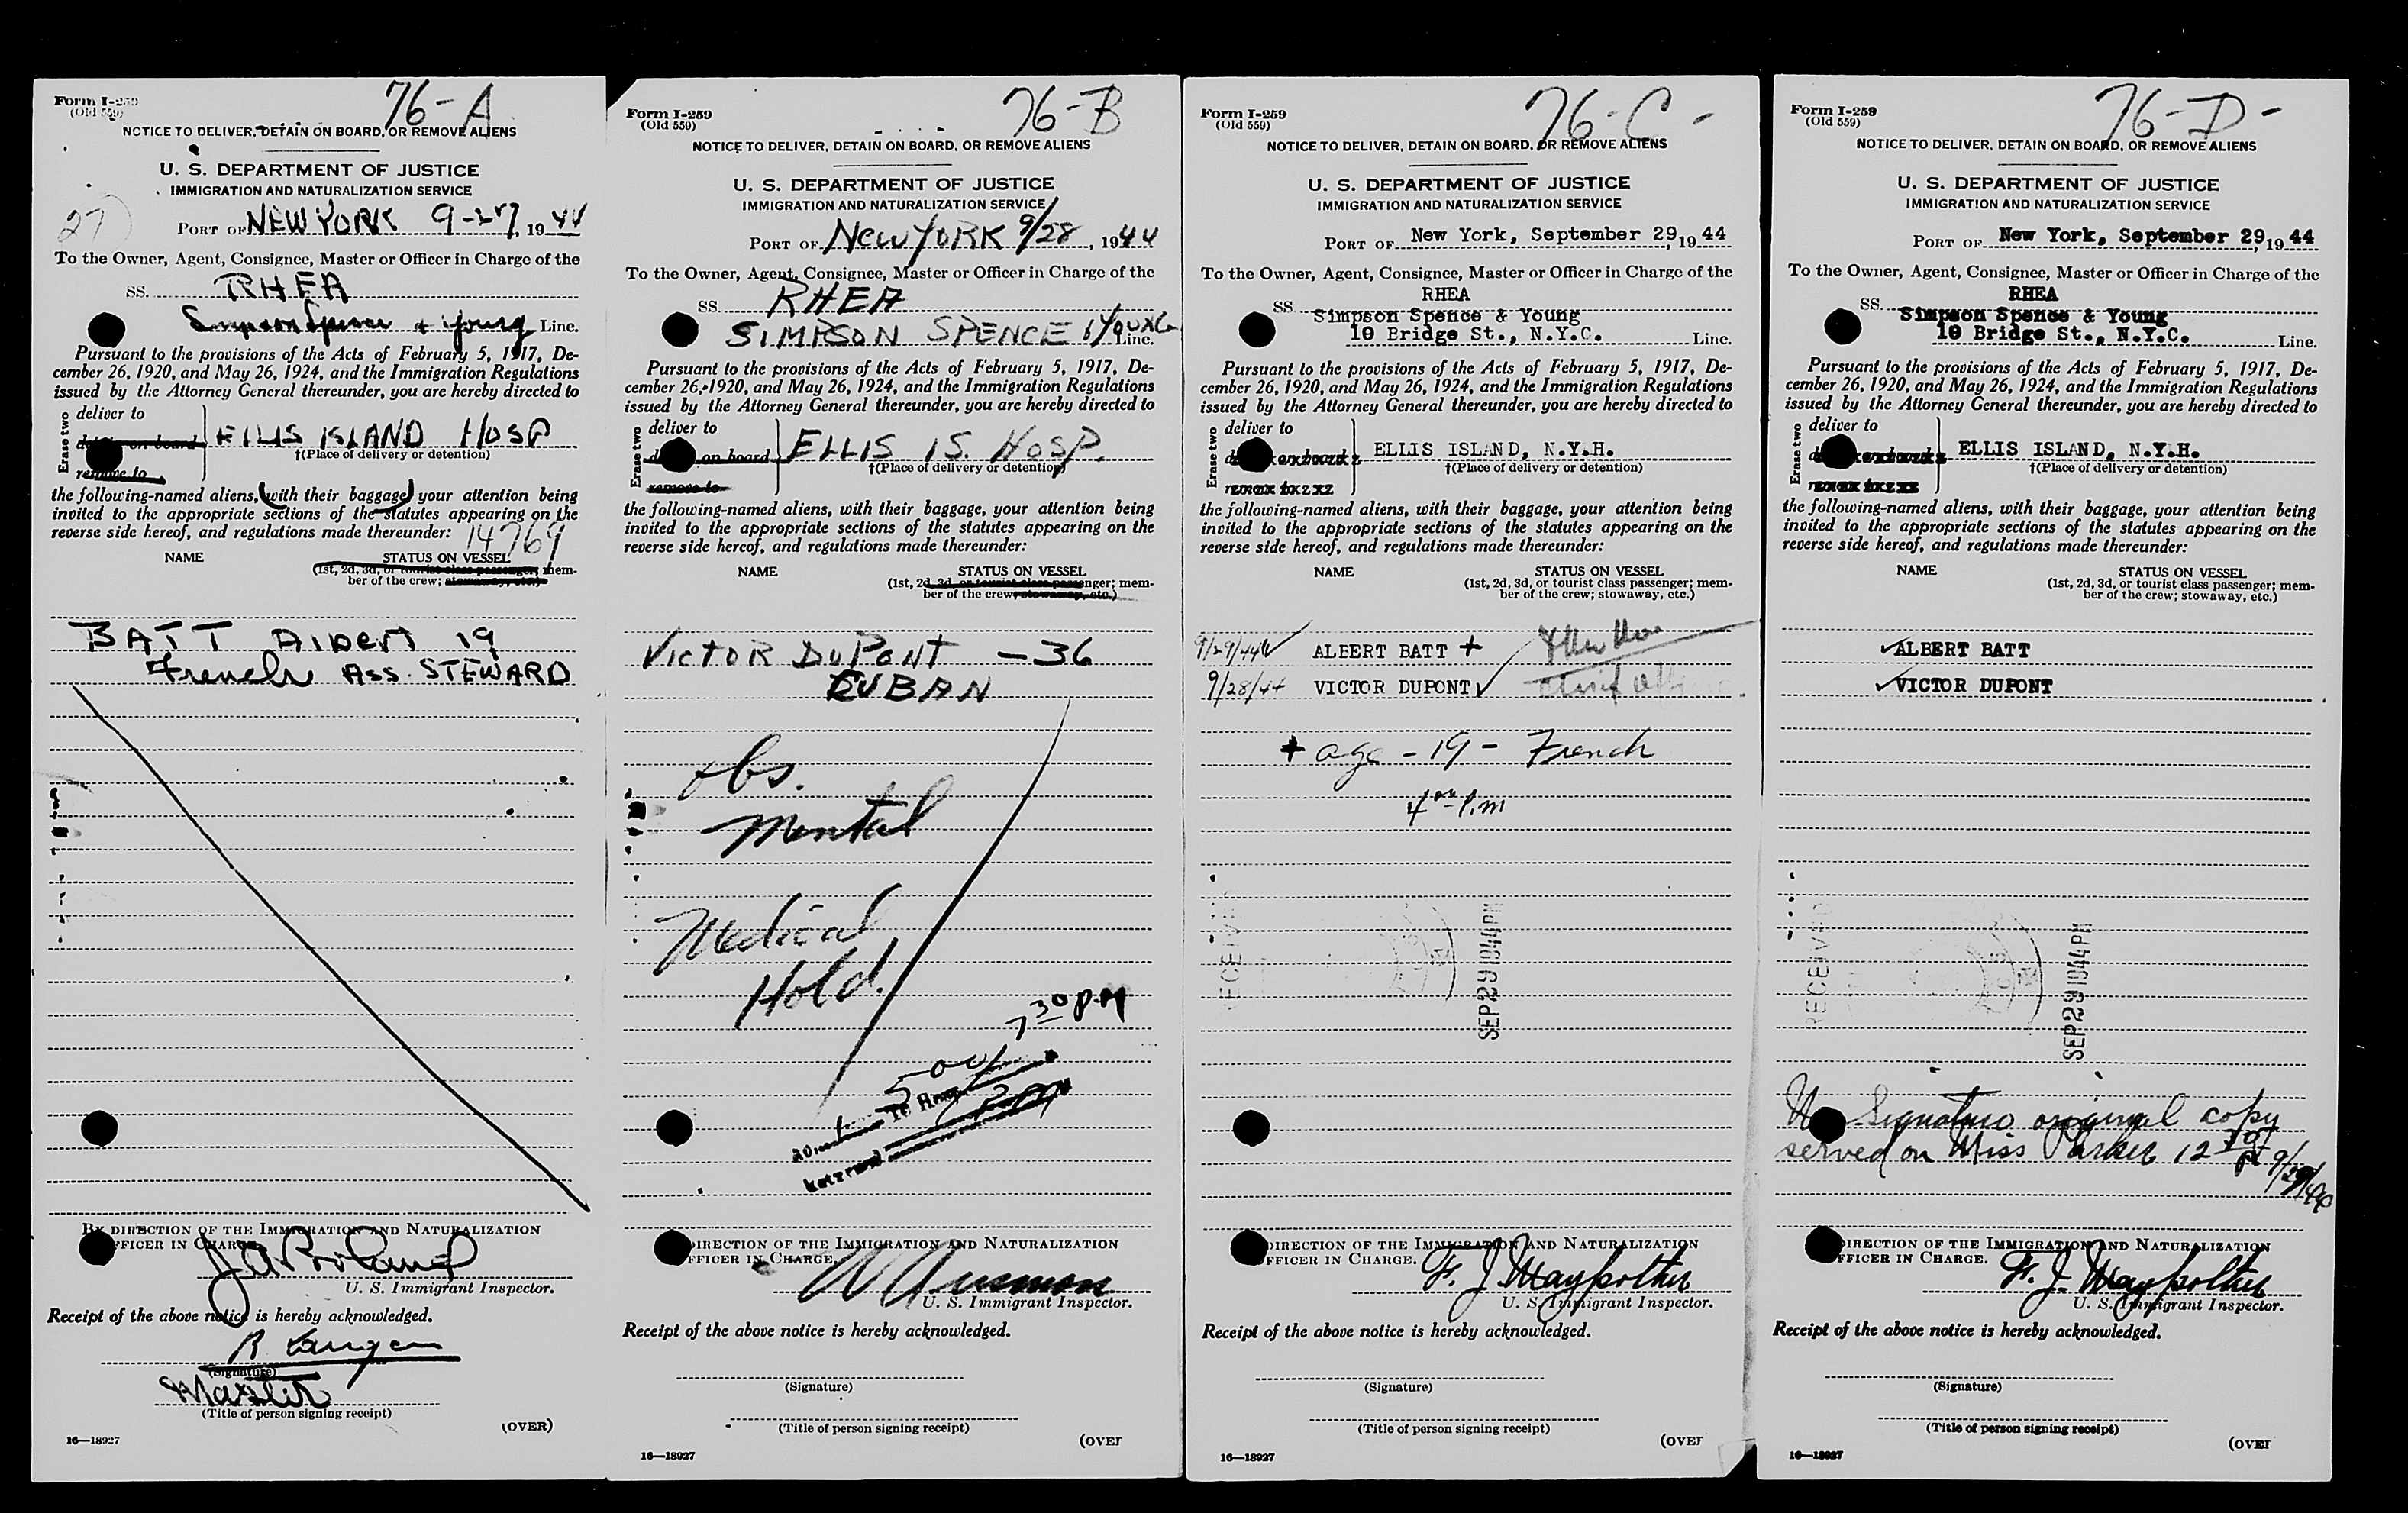 76-A
Form I-259
(Old 559)
NOTICE TO DELIVER, DETAIN ON BOARD, OR REMOVE ALIENS
U. S. DEPARTMENT OF JUSTICE
IMMIGRATION AND NATURALIZATION SERVICE
27
PORT OF NEW YORK 9-27, 1944
To the Owner, Agent, Consignee, Master or Officer in Charge of the
SS. RHEA
Simpson Spence & Young Line.
Pursuant to the provisions of the Acts of February 5, 1917, De-
cember 26, 1920, and May 26, 1924, and the Immigration Regulations
issued by the Attorney General thereunder, you are hereby directed to
Erase two
deliver to
on board
ELLIS ISLAND HOSP
†(Place of delivery or detention)
remove to
the following-named aliens, with their baggage, your attention being
invited to the appropriate sections of the statutes appearing on the
reverse side hereof, and regulations made thereunder: 14769
NAME STATUS ON VESSEL
(1st, 2d, 3d, or tourist class passenger; mem-
ber of the crew; stowaway, etc.)
BATT Albert 19
French Ass. STEWARD
BY DIRECTION OF THE IMMIGRATION AND NATURALIZATION
OFFICER IN CHARGE.
U. S. Immigrant Inspector.
Receipt of the above notice is hereby acknowledged.
(Signature)
Master
(Title of person signing receipt)
(OVER)
16—18927
76-B
Form I-259
(Old 559)
NOTICE TO DELIVER, DETAIN ON BOARD, OR REMOVE ALIENS
U. S. DEPARTMENT OF JUSTICE
IMMIGRATION AND NATURALIZATION SERVICE
PORT OF NEW YORK 9/28, 1944
To the Owner, Agent, Consignee, Master or Officer in Charge of the
SS. RHEA
SIMPSON SPENCE & YOUNG Line.
Pursuant to the provisions of the Acts of February 5, 1917, De-
cember 26, 1920, and May 26, 1924, and the Immigration Regulations
issued by the Attorney General thereunder, you are hereby directed to
Erase two
deliver to
on board
ELLIS IS. HOSP.
†(Place of delivery or detention)
remove to
the following-named aliens, with their baggage, your attention being
invited to the appropriate sections of the statutes appearing on the
reverse side hereof, and regulations made thereunder:
NAME STATUS ON VESSEL
(1st, 2d, 3d, or tourist class passenger; mem-
ber of the crew; stowaway, etc.)
VICTOR DUPONT — 36
CUBAN
obs.
Mental
Medical
Hold.
7 30 P.M
DIRECTION OF THE IMMIGRATION AND NATURALIZATION
OFFICER IN CHARGE.
U. S. Immigrant Inspector.
Receipt of the above notice is hereby acknowledged.
(Signature)
(Title of person signing receipt)
(OVER
16—18927
76-C-
Form I-259
(Old 559)
NOTICE TO DELIVER, DETAIN ON BOARD, OR REMOVE ALIENS
U. S. DEPARTMENT OF JUSTICE
IMMIGRATION AND NATURALIZATION SERVICE
PORT OF New York, September 29, 1944
To the Owner, Agent, Consignee, Master or Officer in Charge of the
RHEA
SS. Simpson Spence & Young
10 Bridge St., N.Y.C. Line.
Pursuant to the provisions of the Acts of February 5, 1917, De-
cember 26, 1920, and May 26, 1924, and the Immigration Regulations
issued by the Attorney General thereunder, you are hereby directed to
Erase two
deliver to
ELLIS ISLAND, N.Y.H.
†(Place of delivery or detention)
the following-named aliens, with their baggage, your attention being
invited to the appropriate sections of the statutes appearing on the
reverse side hereof, and regulations made thereunder:
NAME STATUS ON VESSEL
(1st, 2d, 3d, or tourist class passenger; mem-
ber of the crew; stowaway, etc.)
9/29/44 ✓ ALBERT BATT +
9/28/44 VICTOR DUPONT ✓
+ age - 19 - French
4 00 P.m
RECEIVED
SEP 29 1944 PM
DIRECTION OF THE IMMIGRATION AND NATURALIZATION
OFFICER IN CHARGE.
F. J. Maypother
U. S. Immigrant Inspector.
Receipt of the above notice is hereby acknowledged.
(Signature)
(Title of person signing receipt)
(OVER
16—18927
76-D-
Form I-259
(Old 559)
NOTICE TO DELIVER, DETAIN ON BOARD, OR REMOVE ALIENS
U. S. DEPARTMENT OF JUSTICE
IMMIGRATION AND NATURALIZATION SERVICE
PORT OF New York, September 29, 1944
To the Owner, Agent, Consignee, Master or Officer in Charge of the
RHEA
SS. Simpson Spence & Young
10 Bridge St., N.Y.C. Line.
Pursuant to the provisions of the Acts of February 5, 1917, De-
cember 26, 1920, and May 26, 1924, and the Immigration Regulations
issued by the Attorney General thereunder, you are hereby directed to
Erase two
deliver to
ELLIS ISLAND, N.Y.H.
†(Place of delivery or detention)
the following-named aliens, with their baggage, your attention being
invited to the appropriate sections of the statutes appearing on the
reverse side hereof, and regulations made thereunder:
NAME STATUS ON VESSEL
(1st, 2d, 3d, or tourist class passenger; mem-
ber of the crew; stowaway, etc.)
✓ALBERT BATT
✓VICTOR DUPONT
RECEIVED
SEP 29 1944 PM
No Signature original copy
served on Miss Parker 12 30 P 9/29/44
DIRECTION OF THE IMMIGRATION AND NATURALIZATION
OFFICER IN CHARGE.
F. J. Maypother
U. S. Immigrant Inspector.
Receipt of the above notice is hereby acknowledged.
(Signature)
(Title of person signing receipt)
(OVER
16—18927